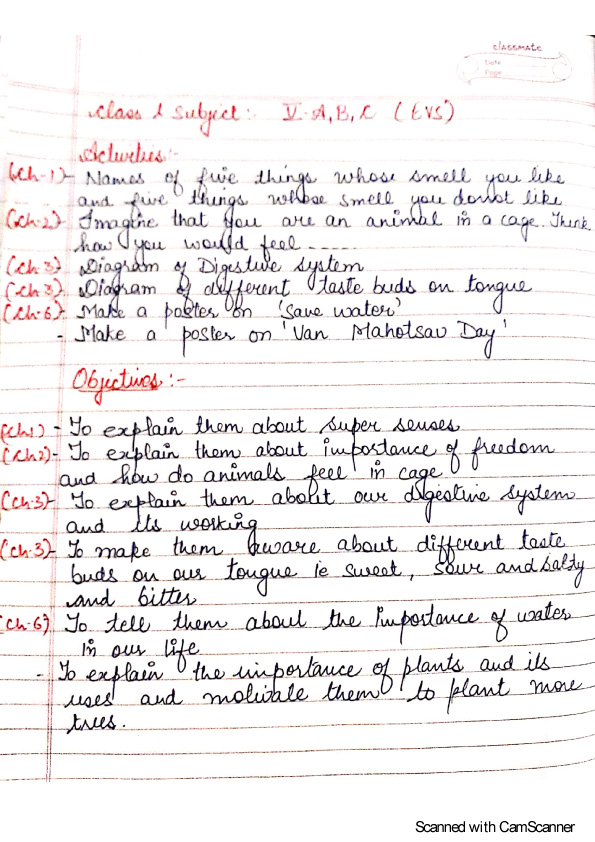 classmate
Date
Page
Class & Subject:- V-A,B,C (EVS)
Activities:-
(Ch-1)- Names of five things whose smell you like
and five things whose smell you donot like
(Ch-2)- Imagine that you are an animal in a cage. Think
how you would feel -----
(Ch-3) Diagram of Digestive system
(Ch-3). Diagram of different taste buds on tongue
(Ch-6)- Make a poster on 'Save water'
- Make a poster on 'Van Mahotsav Day'
Objectives:-
(Ch1) - To explain them about super senses
(Ch2)- To explain them about importance of freedom
and how do animals feel in cage
(Ch-3)- To explain them about our digestive system
and its working
(Ch-3)- To make them aware about different taste
buds on our tongue ie sweet, sour and salty
and bitter
(Ch-6) To tell them about the importance of water
in our life
- To explain the importance of plants and its
uses and motivate them to plant more
trees.
Scanned with CamScanner